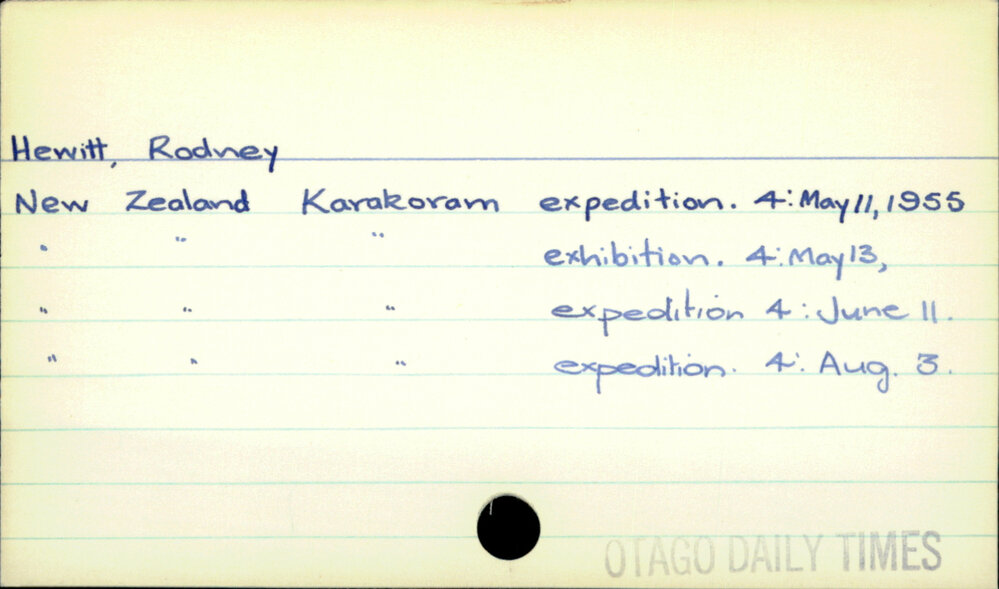 Hewitt, Rodney
New Zealand Karakoram expedition. 4: May 11, 1955
" " " exhibition. 4: May 13,
" " " expedition 4: June 11.
" " " expedition. 4: Aug. 3.
OTAGO DAILY TIMES